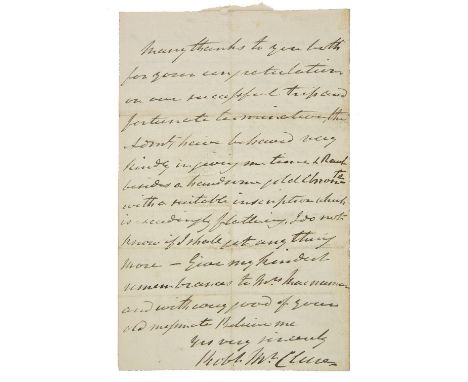 Many thanks to you both
for your congratulation
on our successful trip and
fortunate termination, the
Admty have behaved very
kindly in giving me time & Rank
besides a handsome gold Chronr
with a suitable inscription which
is exceedingly flattering, I do not
know if I shall get any thing
more — Give my kindest
remembrances to Mrs
and with every good of your
old messmate Believe me
Yrs very sincerely
Robt. McClure